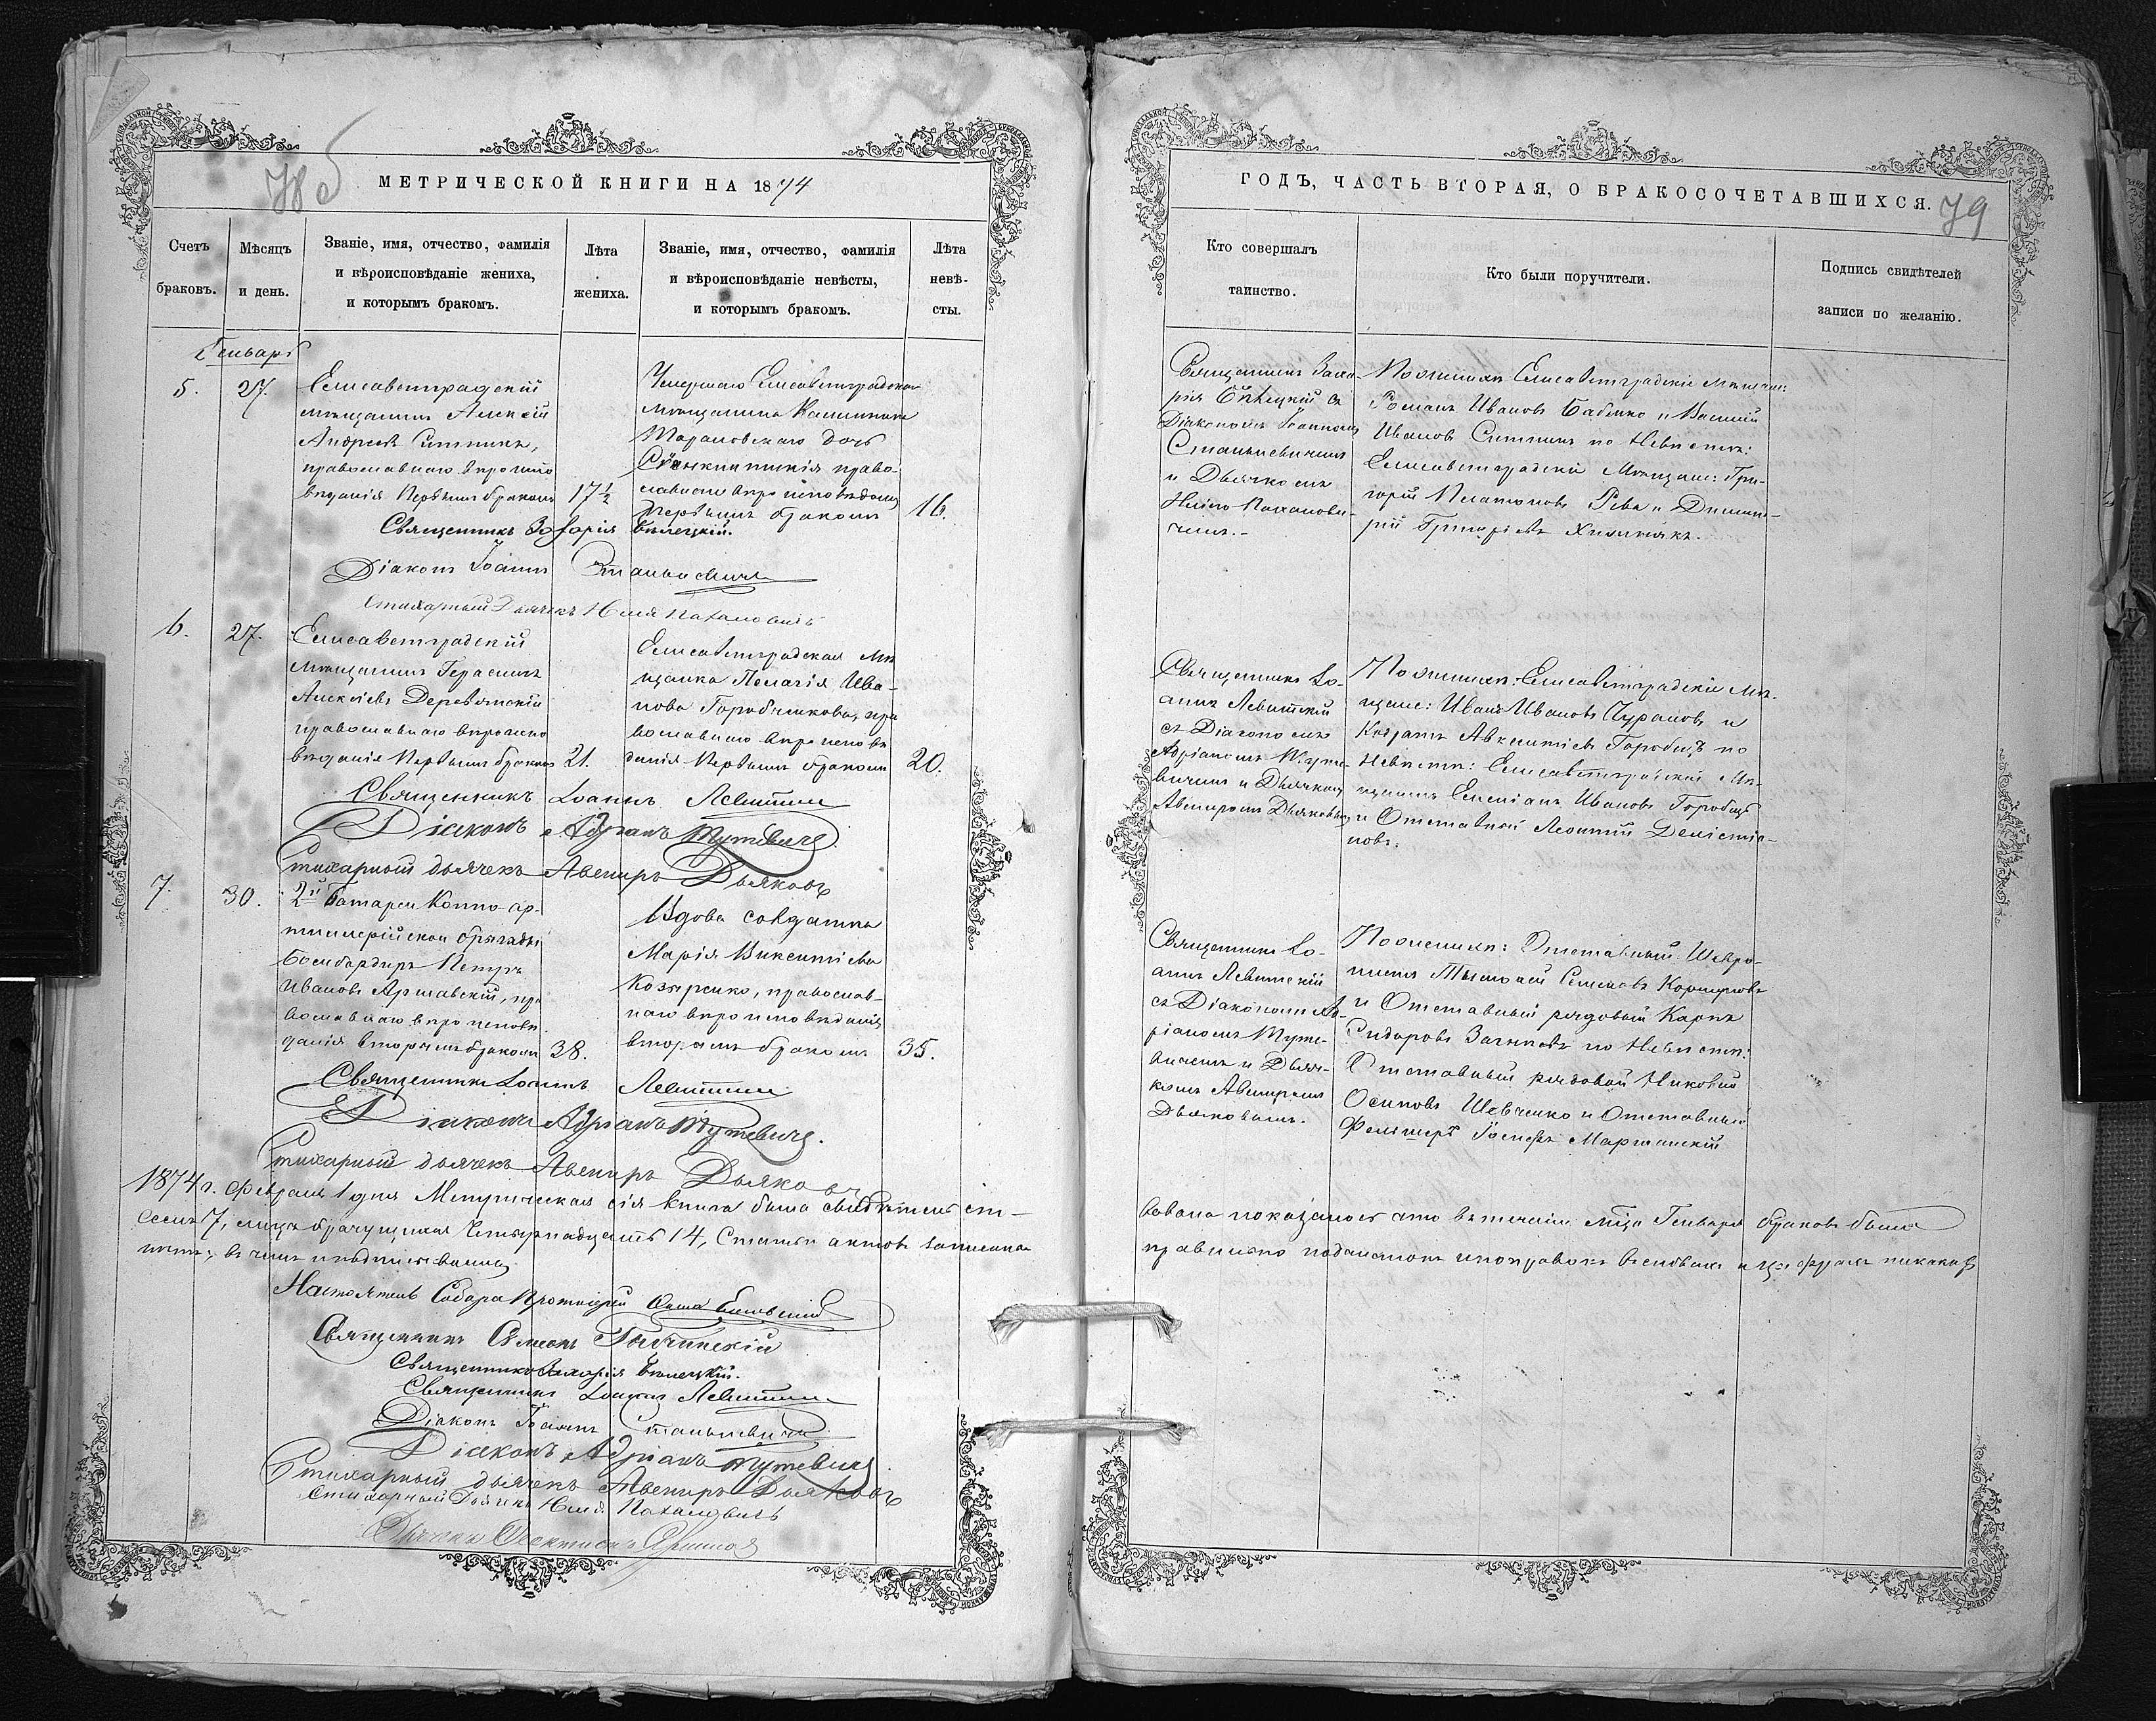 78 об
МЕТРИЧЕСКОЙ КНИГИ НА 1874
Счетъ
браковъ.
Мѣсяцъ
и день.
Званіе, имя, отчество, фамилія
и вѣроисповѣданіе жениха,
и которымъ бракомъ.
Лѣта
жениха.
Званіе, имя, отчество, фамилія
и вѣроисповѣданіе невѣсты,
и которымъ бракомъ.
Лѣта
невѣ-
сты.
Генварь
5.
27.
Елисаветградскій
мѣщанинъ Алексій
Андреевъ Ситникъ,
православнаго вѣроиспо
вѣданія Первымъ бракомъ
17½
Умершаго Елисаветградскаго
мѣщанина Калинника
Тарановскаго дочь
православнаго вѣроисповѣданія
Первымъ бракомъ
16.
Священникъ Захарія Бѣлецкій.
Діаконъ Іоаннъ Станкевичъ
Стихарный Дьячекъ Илія Пахаловичъ
6.
27.
Елисаветградскій
мѣщанинъ Герасимъ
Алексѣевъ Деревянскій
православнаго вѣроиспо
вѣданія Первымъ бракомъ
21.
Елисаветградская Мѣ
щанка Пелагія Ива-
нова Горобчикова, пра
вославнаго вѣроисповѣ
данія Первымъ бракомъ
20.
Священникъ Іоаннъ Левитскій
Діаконъ Адріанъ Тутевичъ
Стихарный дьячекъ Авениръ Дьяковъ
7.
30.
2й Батареи Конно-ар-
тиллерійской бригады
бомбардиръ Петръ
Ивановъ Аршавскій, пра
вославнаго вѣроисповѣ
данія вторымъ бракомъ
38.
Вдова солдатка
Марія Викентіева
Козыренко, православ-
наго вѣроисповѣданія
вторымъ бракомъ
35.
Священникъ Іоаннъ Левитскій
Діаконъ Адріанъ Тутевичъ.
Стихарный дьячекъ Авениръ Дьяковъ
1874 г. Февраля 1 дня Метрическая сія книга была свидѣтельст-
семь 7, лицъ брачущихся Четырнадцать 14, Статьи актовъ записаны
нѣтъ; въ чемъ и подписываемся
Настоятель Собора Протоіерей
Священникъ Симеонъ
Священникъ Захарія Бѣлецкій.
Священникъ Іоаннъ Левитскій
Діаконъ Іоаннъ Станкевичъ
Діаконъ Адріанъ Тутевичъ
Стихарный дьячекъ Авениръ Дьяковъ
Стихарный Дьячекъ Илія Пахаловичъ
Дьячекъ
ГОДЪ, ЧАСТЬ ВТОРАЯ, О БРАКОСОЧЕТАВШИХСЯ.
79
Кто совершалъ
таинство.
Кто были поручители.
Подпись свидѣтелей
записи по желанію.
Священникъ Заха-
рія Бѣлецкій съ
Діакономъ Іоанномъ
Станкевичемъ
и Дьячкомъ
Иліею Пахалови-
чемъ.-
По женихѣ Елисаветградскіе мѣщане:
Романъ Ивановъ Бабенко и Василій
Ивановъ Ситникъ по Невѣстѣ:
Елисаветградскіе Мѣщане: Гри-
горій Платоновъ Рева и Димит-
рій Григоріевъ Хижнякъ.
Священникъ Іо-
аннъ Левитскій
съ Діакономъ
Адріаномъ Туте-
вичемъ и Дьячкомъ
Авениромъ Дьяковымъ
По женихѣ: Елисаветградскіе Мѣ-
щане: Иванъ Ивановъ Чурановъ и
Кодратъ Авксентіевъ Горобецъ по
Невѣстѣ: Елисаветградскій Мѣ-
щанинъ Емеліанъ Ивановъ Горобецъ
и Отставной Леонтій
новъ.
Священникъ Іо-
аннъ Левитскій
съ Діакономъ Ад-
ріаномъ Туте-
вичемъ и Дьяч-
комъ Авениромъ
Дьяковымъ.
По женихѣ: Отставный
Тимофей Семеновъ
и Отставный рядовый Карпъ
Сидоровъ по Невѣстѣ:
Отставный рядовой
Осиповъ Шевченко и Отставный
Фельдшеръ Іосифъ
вована показалось что въ теченіи мѣца Генваря браковъ было
правильно подчистокъ и поправокъ въ словахъ и цыфрахъ никакихъ